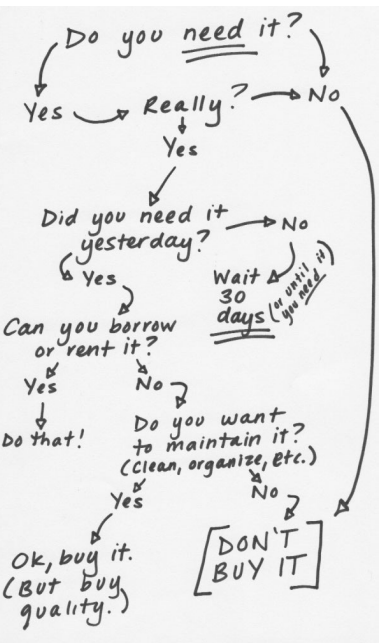 Do you need it?
Yes
Really?
No
Yes
Did you need it
yesterday?
No
Yes
Wait
30
days
(or until it
you need)
Can you borrow
or rent it?
Yes
No
Do that!
Do you want
to maintain it?
(Clean, organize, etc.)
Yes
No
Ok, buy it.
(But buy
quality.)
[DON'T
BUY IT]